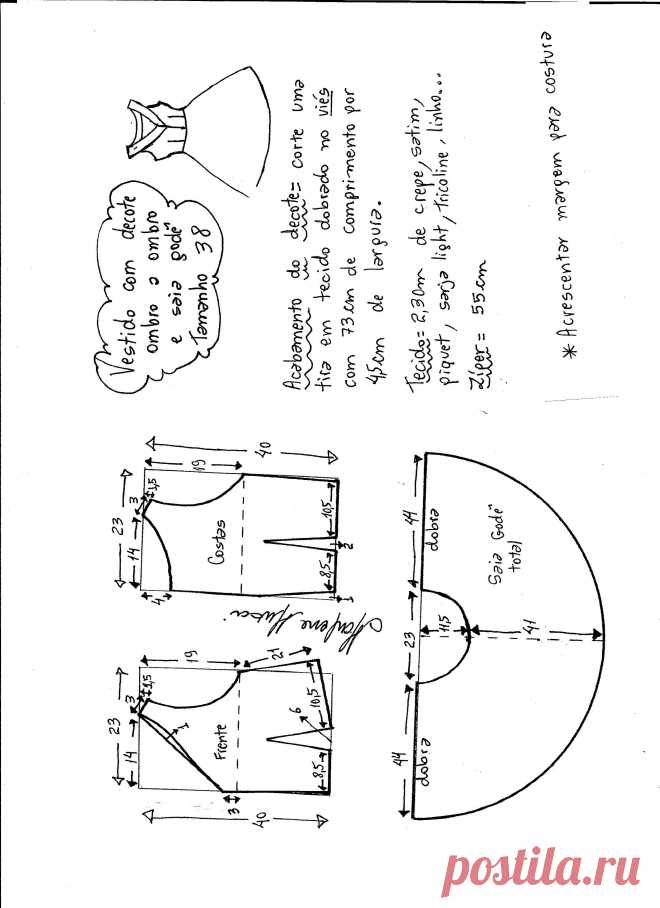 Vestido com decote
ombro a ombro
e saia godê
Tamanho 38
Acabamento do decote= corte uma
tira em tecido dobrado no viés
com 73cm de comprimento por
4,5cm de largura.
Tecido= 2,30m de crepe, satim,
piquet, sarja light, tricoline, linho...
Zíper= 55cm
* Acrescentar margem para costura
23
14
3
1,5
19
1
Frente
21
10,5
6
8,5
3
40
23
14
3
1,5
19
4
Costas
40
10,5
2
8,5
1
Marlene Mukai
44
23
44
dobra
dobra
11,5
41
Saia Godê
total
postila.ru